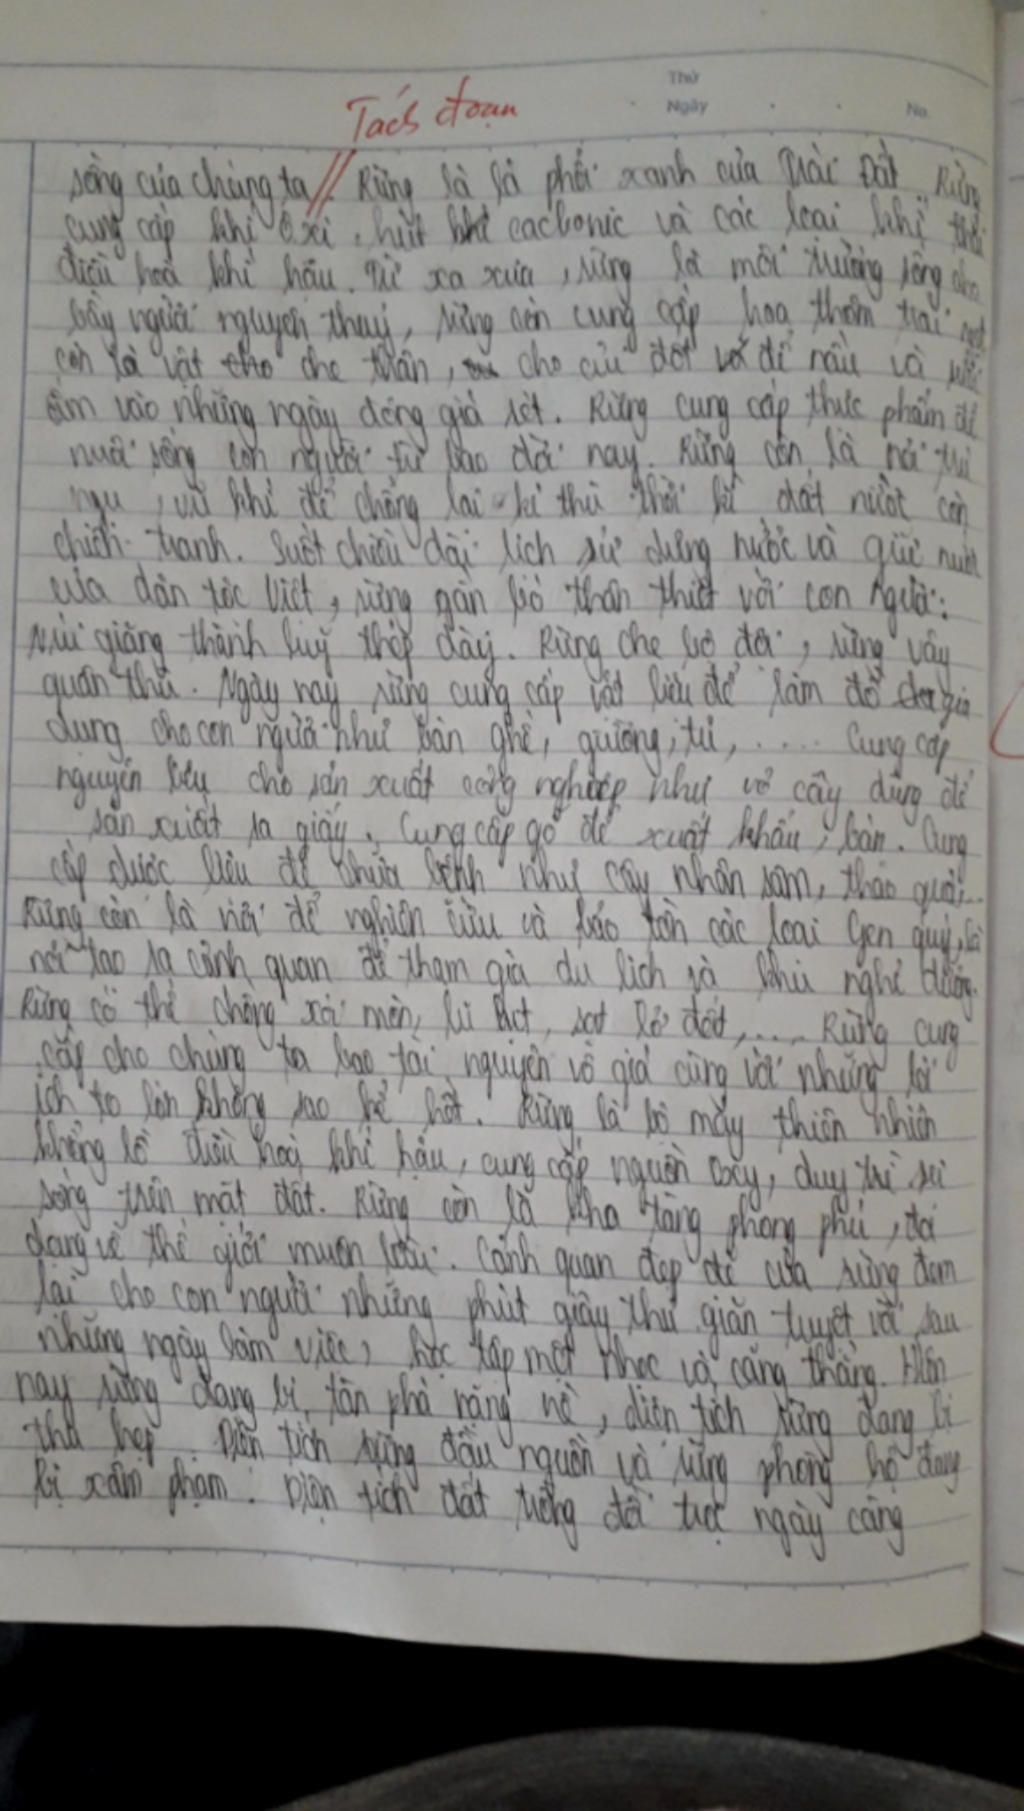 Thứ
Tách đoạn
Ngày
No.
sống của chúng ta // Rừng là lá phổi xanh của Trái Đất. Rừng
cung cấp khí ôxi, hút khí cacbonic và các loại khí thải
điều hoà khí hậu. Từ xa xưa, rừng là môi trường sống cho
bầy người nguyên thuỷ, rừng còn cung cấp hoa thơm trái ngọt
còn là vật che thân, cho củi đốt để nấu và sưởi
ấm vào những ngày đông giá rét. Rừng cung cấp thực phẩm để
nuôi sống con người từ bao đời nay. Rừng còn là nơi trú
ngụ, vũ khí để chống lại kẻ thù thời kì đất nước còn
chiến tranh. Suốt chiều dài lịch sử dựng nước và giữ nước
của dân tộc Việt, rừng gắn bó thân thiết với con người:
Núi giăng thành luỹ thép dày. Rừng che bộ đội, rừng vây
quân thù. Ngày nay rừng cung cấp vật liệu để làm đồ gia
dụng cho con người như bàn ghế, giường, tủ, ..... Cung cấp
nguyên liệu cho sản xuất công nghiệp như vỏ cây dùng để
sản xuất ra giấy. Cung cấp gỗ để xuất khẩu, bán. Cung
cấp dược liệu để chữa bệnh như cây nhân sâm, thảo quả...
Rừng còn là nơi để nghiên cứu và bảo tồn các loại gen quý, là
nơi tạo ra cảnh quan để tham gia du lịch và khu nghỉ dưỡng.
Rừng có thể chống xói mòn, lũ lụt, sạt lở đất, .... Rừng cung
cấp cho chúng ta bao tài nguyên vô giá cùng với những lợi
ích to lớn không sao kể hết. Rừng là bộ máy thiên nhiên
khổng lồ điều hoà khí hậu, cung cấp nguồn oxy, duy trì sự
sống trên mặt đất. Rừng còn là kho tàng phong phú, đa
dạng về thế giới muôn loài. Cảnh quan đẹp đẽ của rừng đem
lại cho con người những phút giây thư giãn tuyệt vời sau
những ngày làm việc, học tập mệt nhọc và căng thẳng. Hiện
nay rừng đang bị tàn phá nặng nề, diện tích rừng đang bị
thu hẹp. Diện tích rừng đầu nguồn và rừng phòng hộ đang
bị xâm phạm. Diện tích đất trống đồi trọc ngày càng